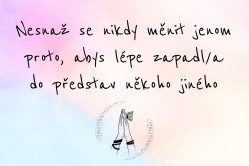 Nesnaž se nikdy měnit jenom
proto, abys lépe zapadl/a
do představ někoho jiného